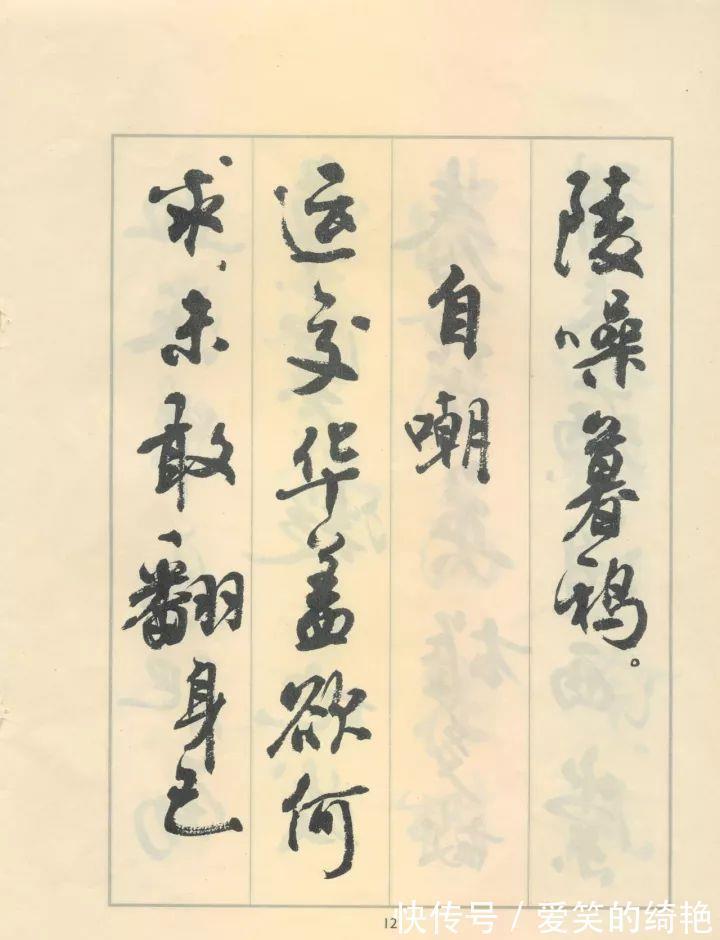 陵噪暮鸦。
自嘲
运交华盖欲何
求,未敢翻身已
12
快传号 / 爱笑的绮艳